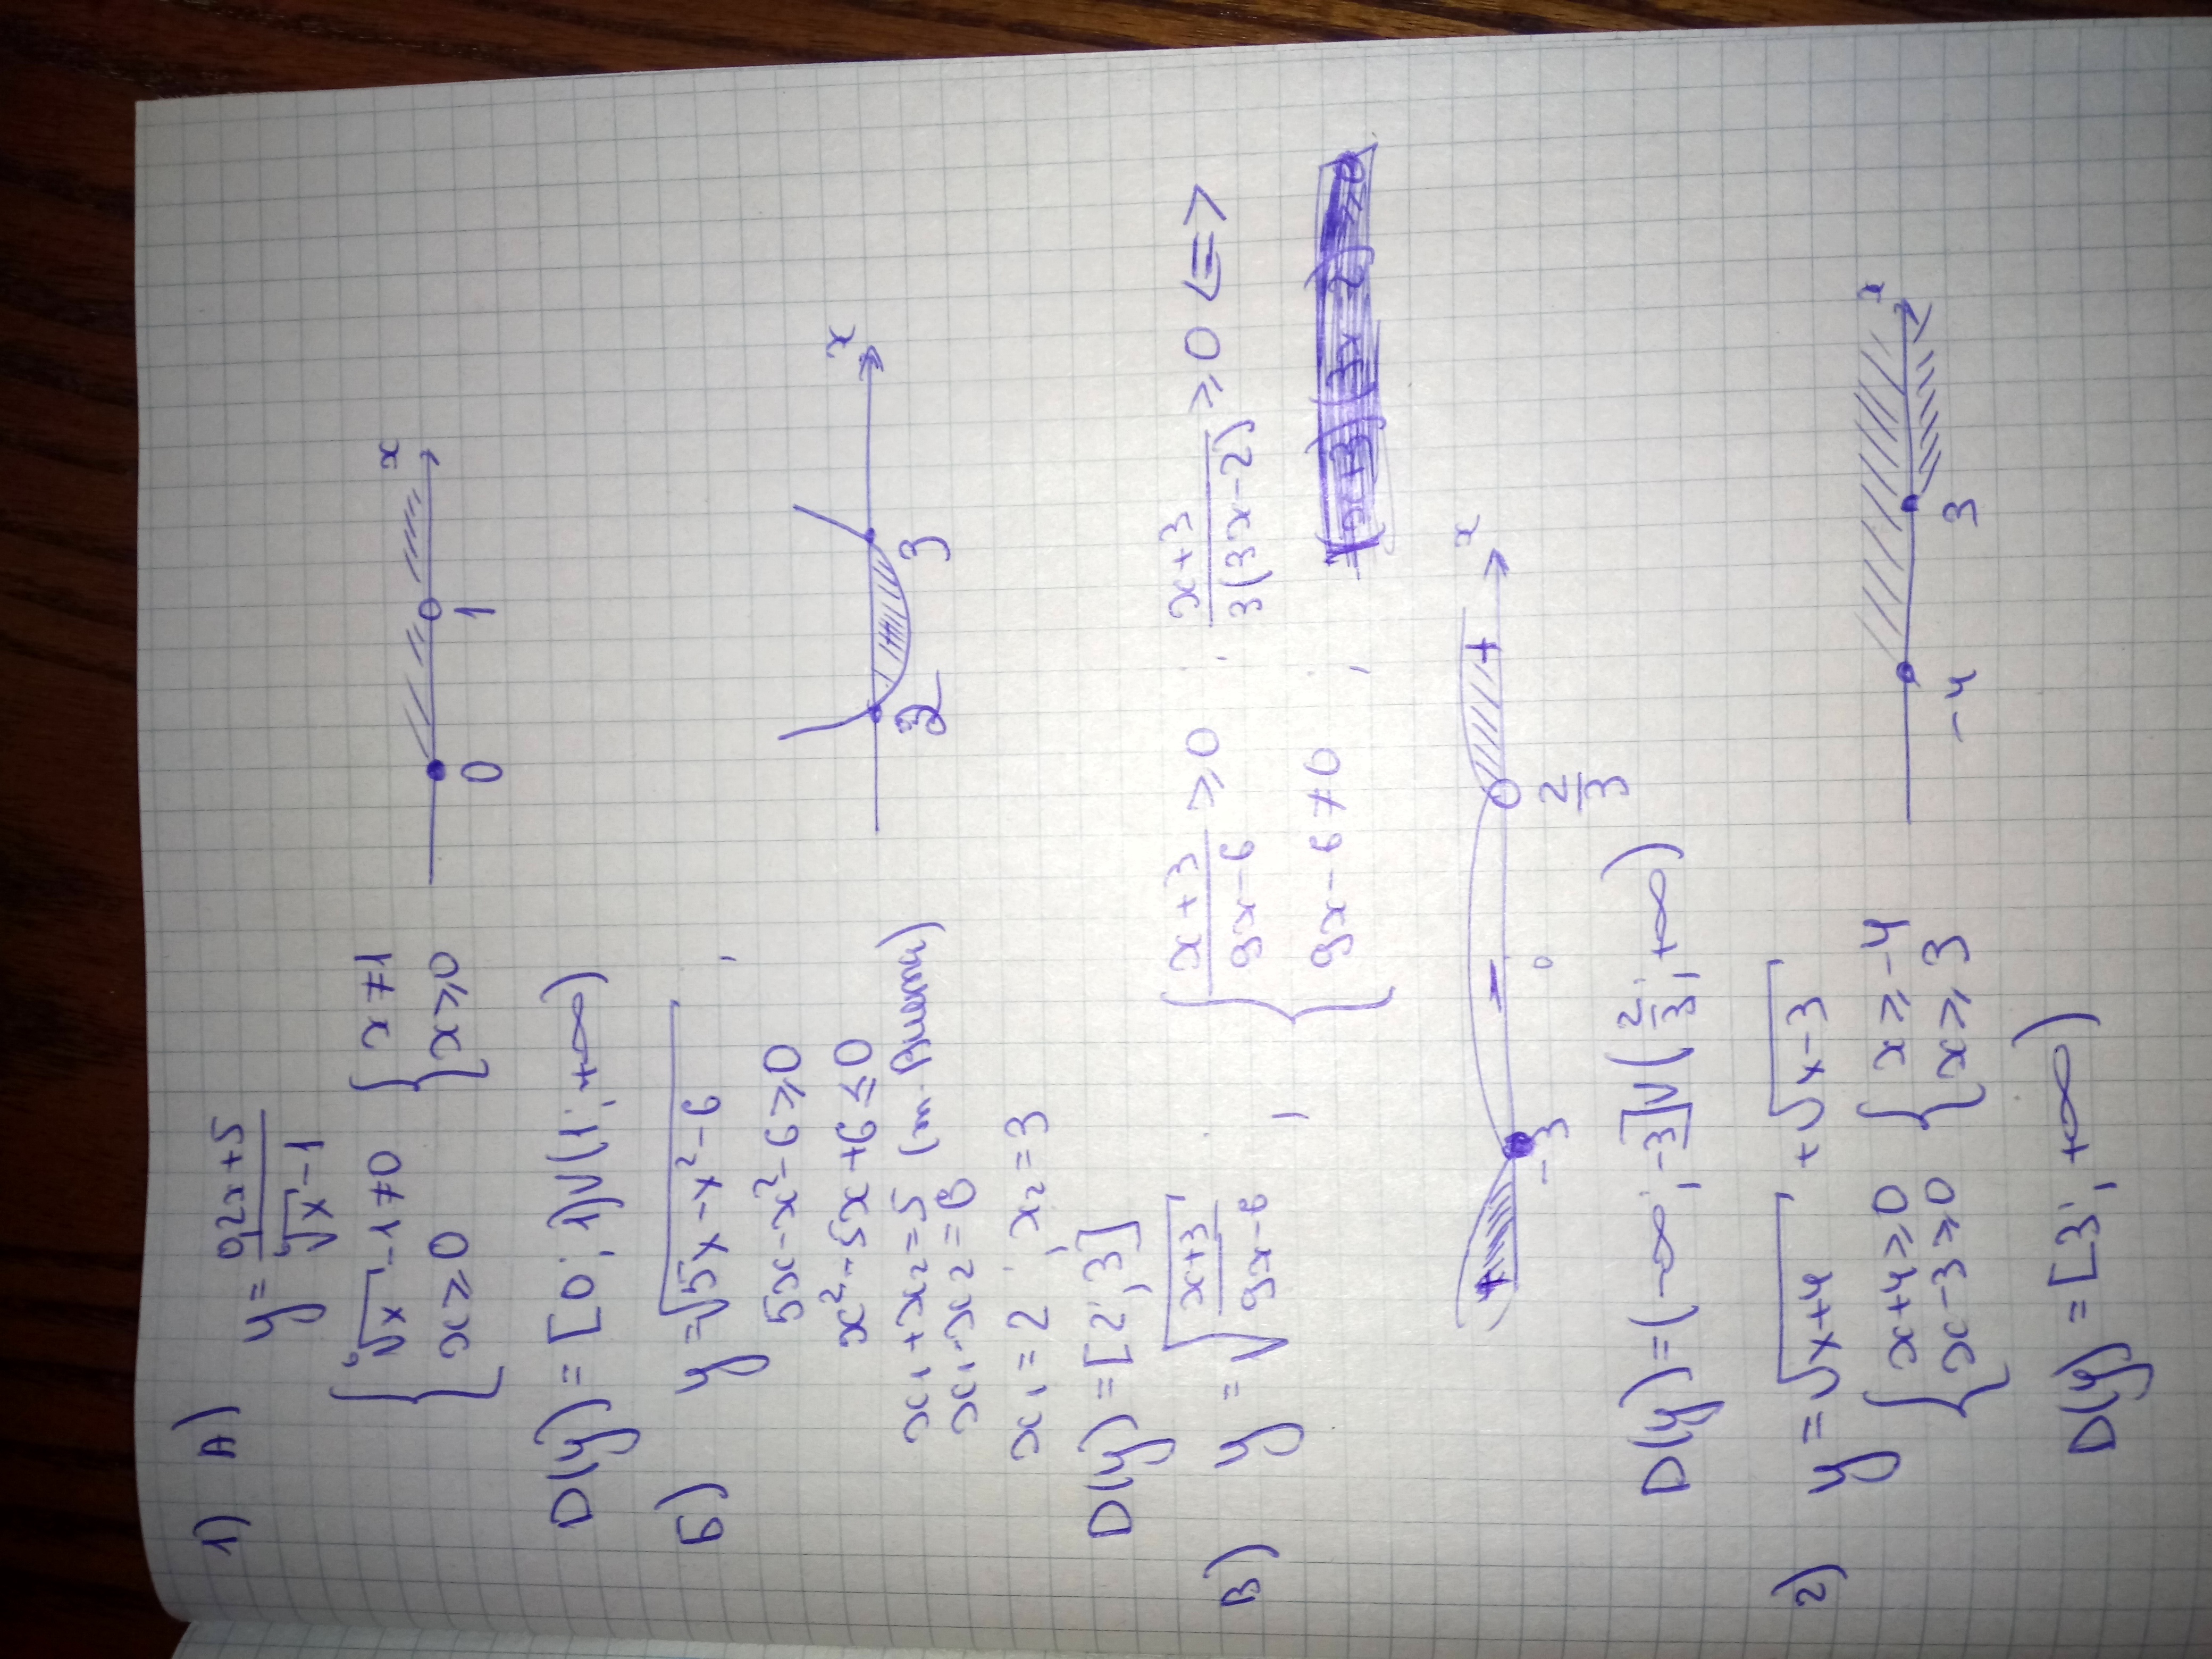 1) А) y = (0,2x+5)/(⁶√x - 1)
{ ⁶√x - 1 ≠ 0 { x ≠ 1
{ x ≥ 0 { x ≥ 0
0 1 x
D(y) = [0; 1)∪(1; +∞)
Б) y = √(5x - x² - 6)
5x - x² - 6 ≥ 0
x² - 5x + 6 ≤ 0
2 3 x
x₁ + x₂ = 5 (т. Виета)
x₁ · x₂ = 6
x₁ = 2; x₂ = 3
D(y) = [2; 3]
В) y = √((x+3)/(9x-6)) , { (x+3)/(9x-6) ≥ 0 ; (x+3)/(3(3x-2)) ≥ 0 <=>
{ 9x - 6 ≠ 0 ;
+ - +
-3 0 2/3 x
D(y) = (-∞; -3]∪(2/3; +∞)
2) y = √(x+4) + √(x-3)
{ x+4 ≥ 0 { x ≥ -4
{ x-3 ≥ 0 { x ≥ 3
-4 3 x
D(y) = [3; +∞)